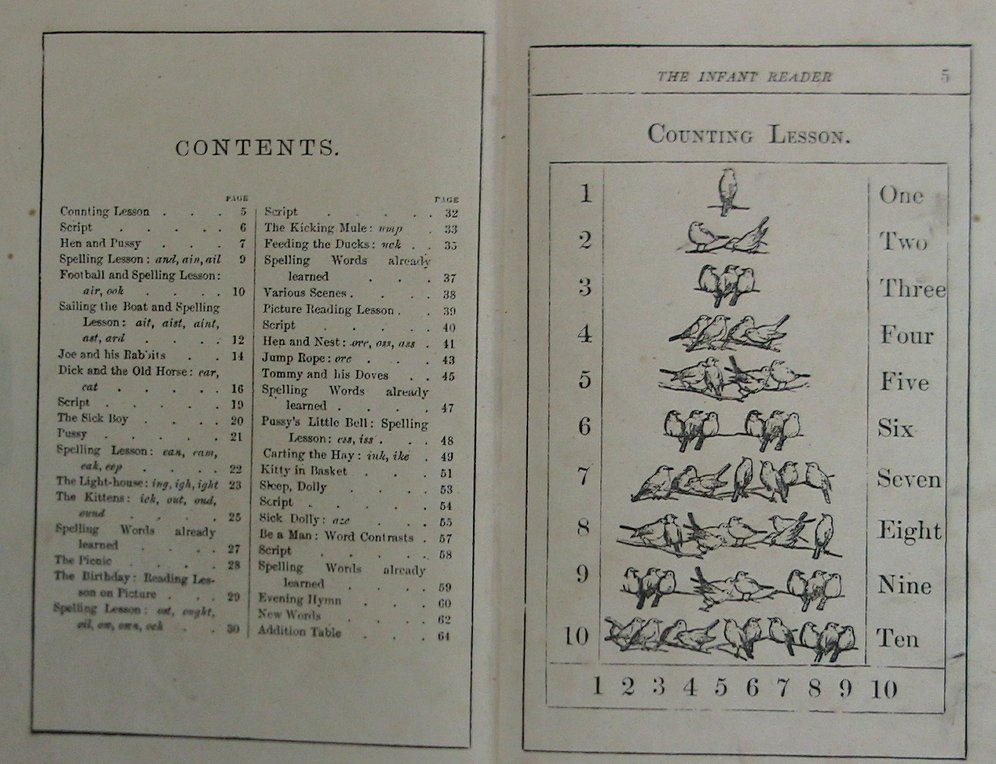 CONTENTS.
PAGE
Counting Lesson . . . 5
Script . . . . . 6
Hen and Pussy . . . 7
Spelling Lesson: and, ain, ail 9
Football and Spelling Lesson:
air, ook . . . . 10
Sailing the Boat and Spelling
Lesson: ait, aist, aint,
ast, ard . . . . 12
Joe and his Rabbits . . 14
Dick and the Old Horse: ear,
eat . . . . . 16
Script . . . . . 19
The Sick Boy . . . . 20
Pussy . . . . . 21
Spelling Lesson: ean, eam,
eak, eep . . . . 22
The Light-house: ing, igh, ight 23
The Kittens: ick, out, oud,
ound . . . . 25
Spelling Words already
learned . . . . 27
The Picnic . . . . 28
The Birthday: Reading Les-
son on Picture . . . 29
Spelling Lesson: ought,
oil, ow, own, ock . . 30
PAGE
Script . . . . . 32
The Kicking Mule: ump . 33
Feeding the Ducks: uck . . 35
Spelling Words already
learned . . . 37
Various Scenes . . . . 38
Picture Reading Lesson . . 39
Script . . . . . 40
Hen and Nest: ore, oss, ass . 41
Jump Rope: ore . . . 43
Tommy and his Doves . . 45
Spelling Words already
learned . . . . 47
Pussy's Little Bell: Spelling
Lesson: ess, iss . . . 48
Carting the Hay: ink, ike . 49
Kitty in Basket . . . 51
Sleep, Dolly . . . . 53
Script . . . . . 54
Sick Dolly: aze . . . 55
Be a Man: Word Contrasts . 57
Script . . . . . 58
Spelling Words already
learned . . . . 59
Evening Hymn . . . 60
New Words . . . . 62
Addition Table . . . 64
THE INFANT READER 5
COUNTING LESSON.
1 One
2 Two
3 Three
4 Four
5 Five
6 Six
7 Seven
8 Eight
9 Nine
10 Ten
1 2 3 4 5 6 7 8 9 10